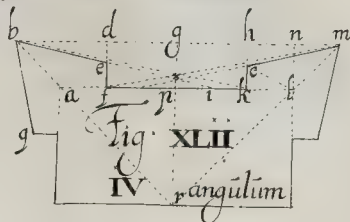 b d g h n m
e c
a f p i k l
g Fig. XLII
IV r angulum